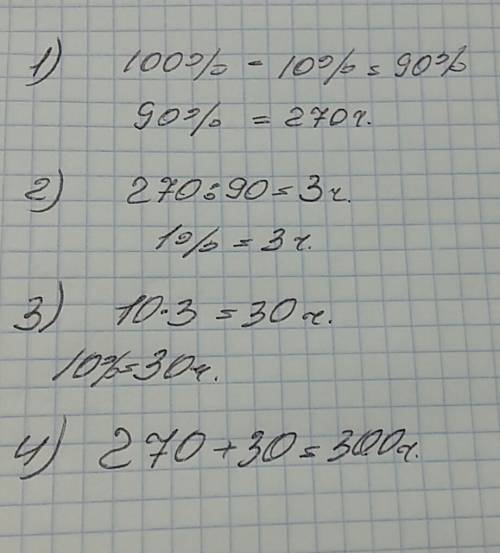 1) 100% - 10% = 90%
90% = 270ч.
2) 270:90=3ч.
1% = 3ч.
3) 10·3 = 30ч.
10%=30ч.
4) 270+30=300ч.